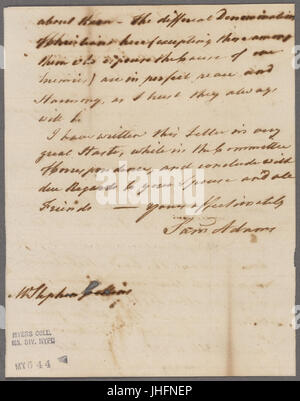 about them - The different Denominations
of Christians here (excepting those among
them who espouse the cause of our
Enemies) are in perfect peace and
Harmony, as I trust they always
will be
I have written this Letter in very
great Haste, while in the Committee
of Correspondence, and conclude with
due Regards to your Spouse and all
Friends — yours affectionately
Sam Adams
Mr Stephen Collins
MYERS COLL.
MS. DIV. NYPL
MY 6 44
alamy
Image ID: JHFNEP
www.alamy.com